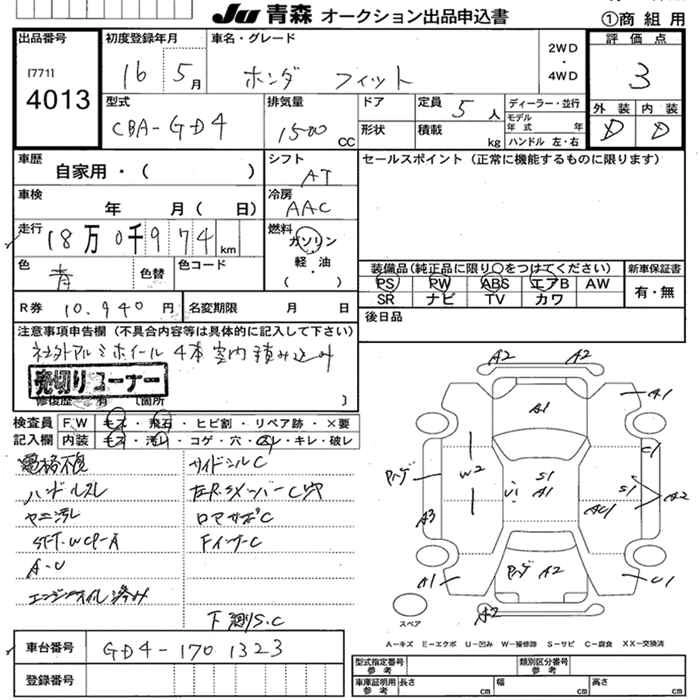 Ju 青森 オークション出品申込書
①商組用
出品番号
[771]
4013
初度登録年月
16 5月
車名・グレード
ホンダ フィット
2WD
・
4WD
評価点
3
外装 内装
D D
型式
CBA-GD4
排気量
1500 CC
ドア
形状
定員 5 人
積載 kg
ディーラー・並行
モデル年式 年
ハンドル 左・右
車歴
自家用・( )
シフト
AT
セールスポイント (正常に機能するものに限ります)
車検
年 月( 日)
冷房
AAC
走行
18万0千974 km
燃料
ガソリン
軽・油
( ・ )
色
青
色替
色コード
装備品(純正品に限り〇をつけてください)
新車保証書
PS PW ABS エアB AW
SR ナビ TV カワ
有・無
R券 10.940円
名変期限 月 日
後日品
注意事項申告欄(不具合内容等は具体的に記入して下さい)
社外アルミホイール4本室内積み込み
売切りコーナー
修復歴 有 (箇所 )
検査員
記入欄
F.W キズ・飛石・ヒビ割・リペア跡・×要
内装 キズ・汚レ・コゲ・穴・スレ・キレ・破レ
サイドシルC
ハンドルスレ
ヤニ汚レ
ロアサポC
STT-WCP-A
FインナーC
A-U
エンジンオイル滲み
下廻S.C
車台番号
GD4-1701323
登録番号
A2 A2
A1
A1
C1
W2
U1
S1
A1
S1
A2
AC1
A3
A1
A2
C1
A2
スペア
A-キズ E-エクボ U-凹み W-補修跡 S-サビ C-腐食 XX-交換済
型式指定番号
参考
類別区分番号
参考
車庫証明用
参考
長さ cm
幅 cm
高さ cm